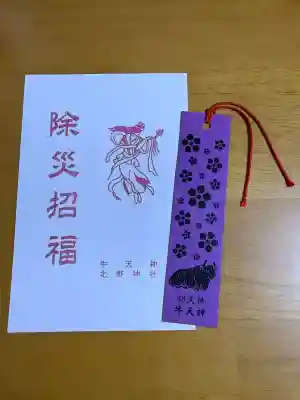 除災招福
牛天神
北野神社
牛天神